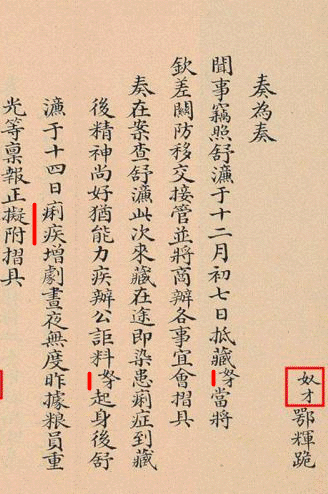 奴才鄂輝跪
奏為奏
聞事竊照舒濂于十二月初七日抵藏奴才當將
欽差關防移交接管並將商辦各事宜會摺具
奏在案查舒濂此次來藏在途即染患痢症到藏
後精神尚好猶能力疾辦公詎料奴才起身後舒
濂于十四日痢疾增劇晝夜無度昨據粮員重
光等稟報正擬附摺具